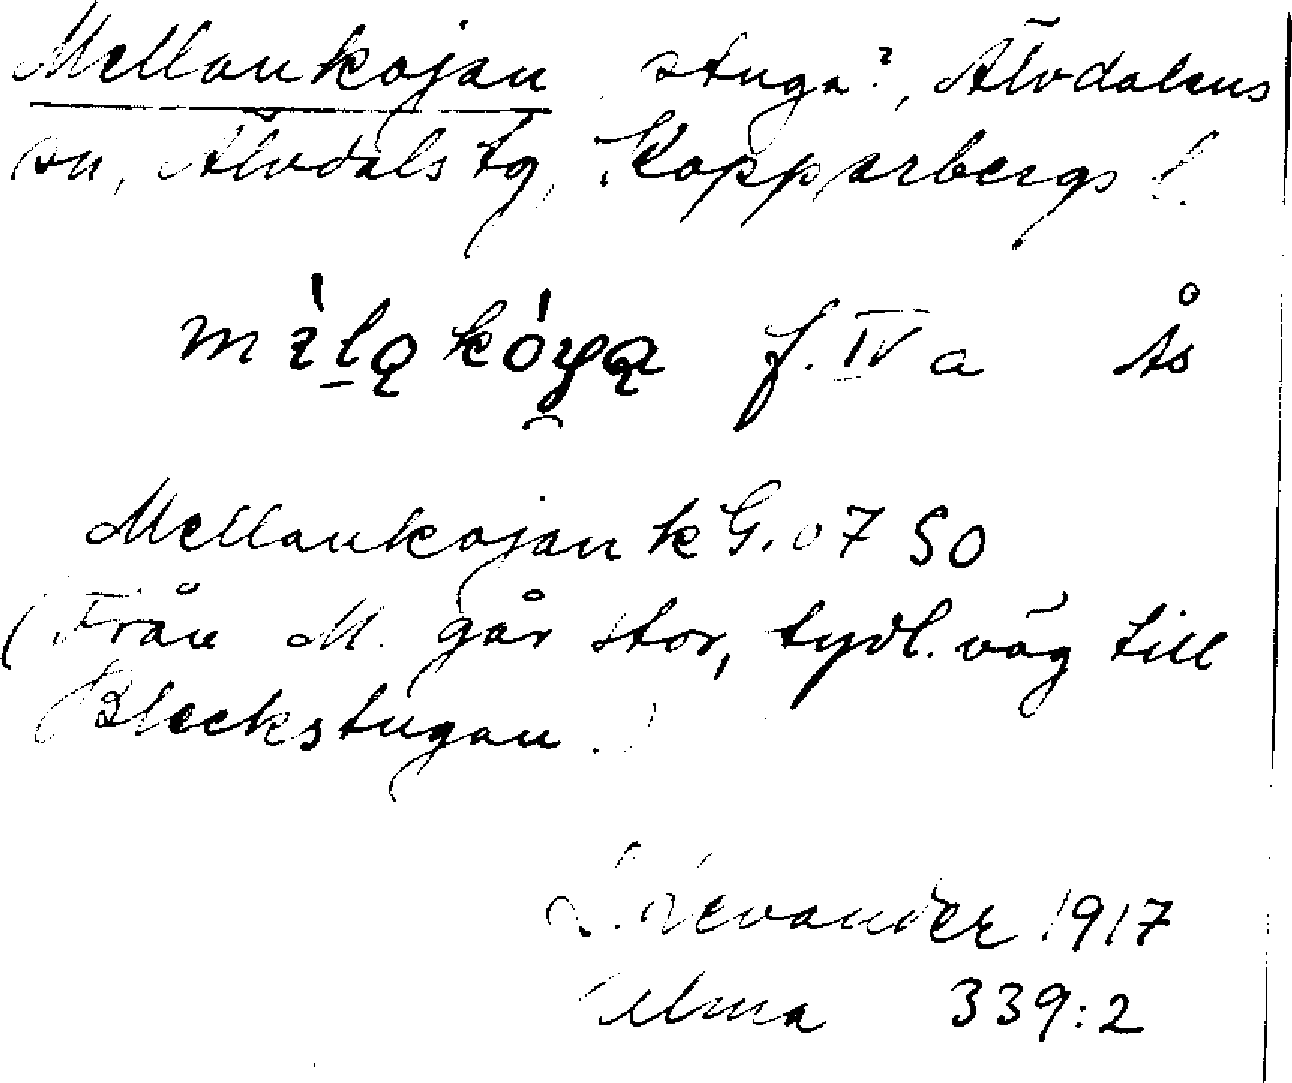 Mellankojan stuga?, Älvdalens
sn, Älvdals tg, Kopparbergs l.
mɪ̀lą kóyą f. IV a Ås
Mellankojan k G. 07 SO
(Från M. går stor, tydl. väg till
Bleckstugan.)
L. Levander 1917
Ulma 339:2